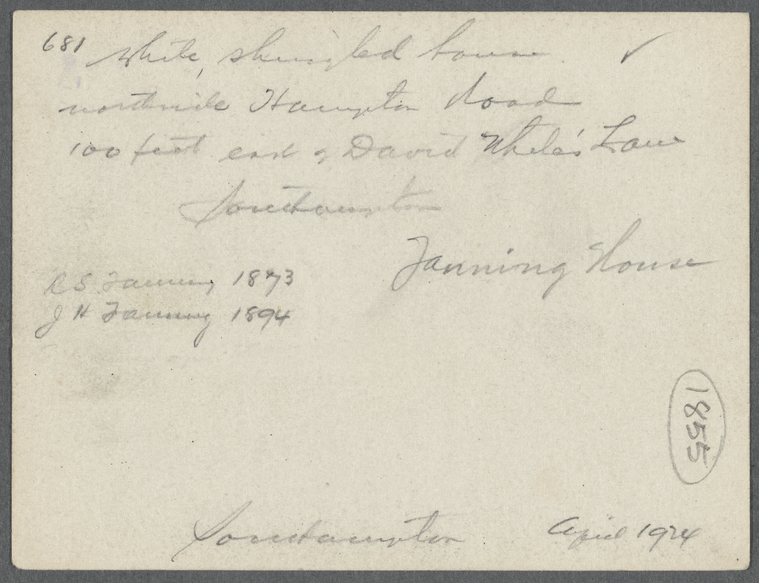 681 White, shingled house ✓
northside Hampton Road
100 feet east of David White's Lane
Southampton
Fanning House
R S Fanning 1873
J H Fanning 1894
1855
Southampton April 1924